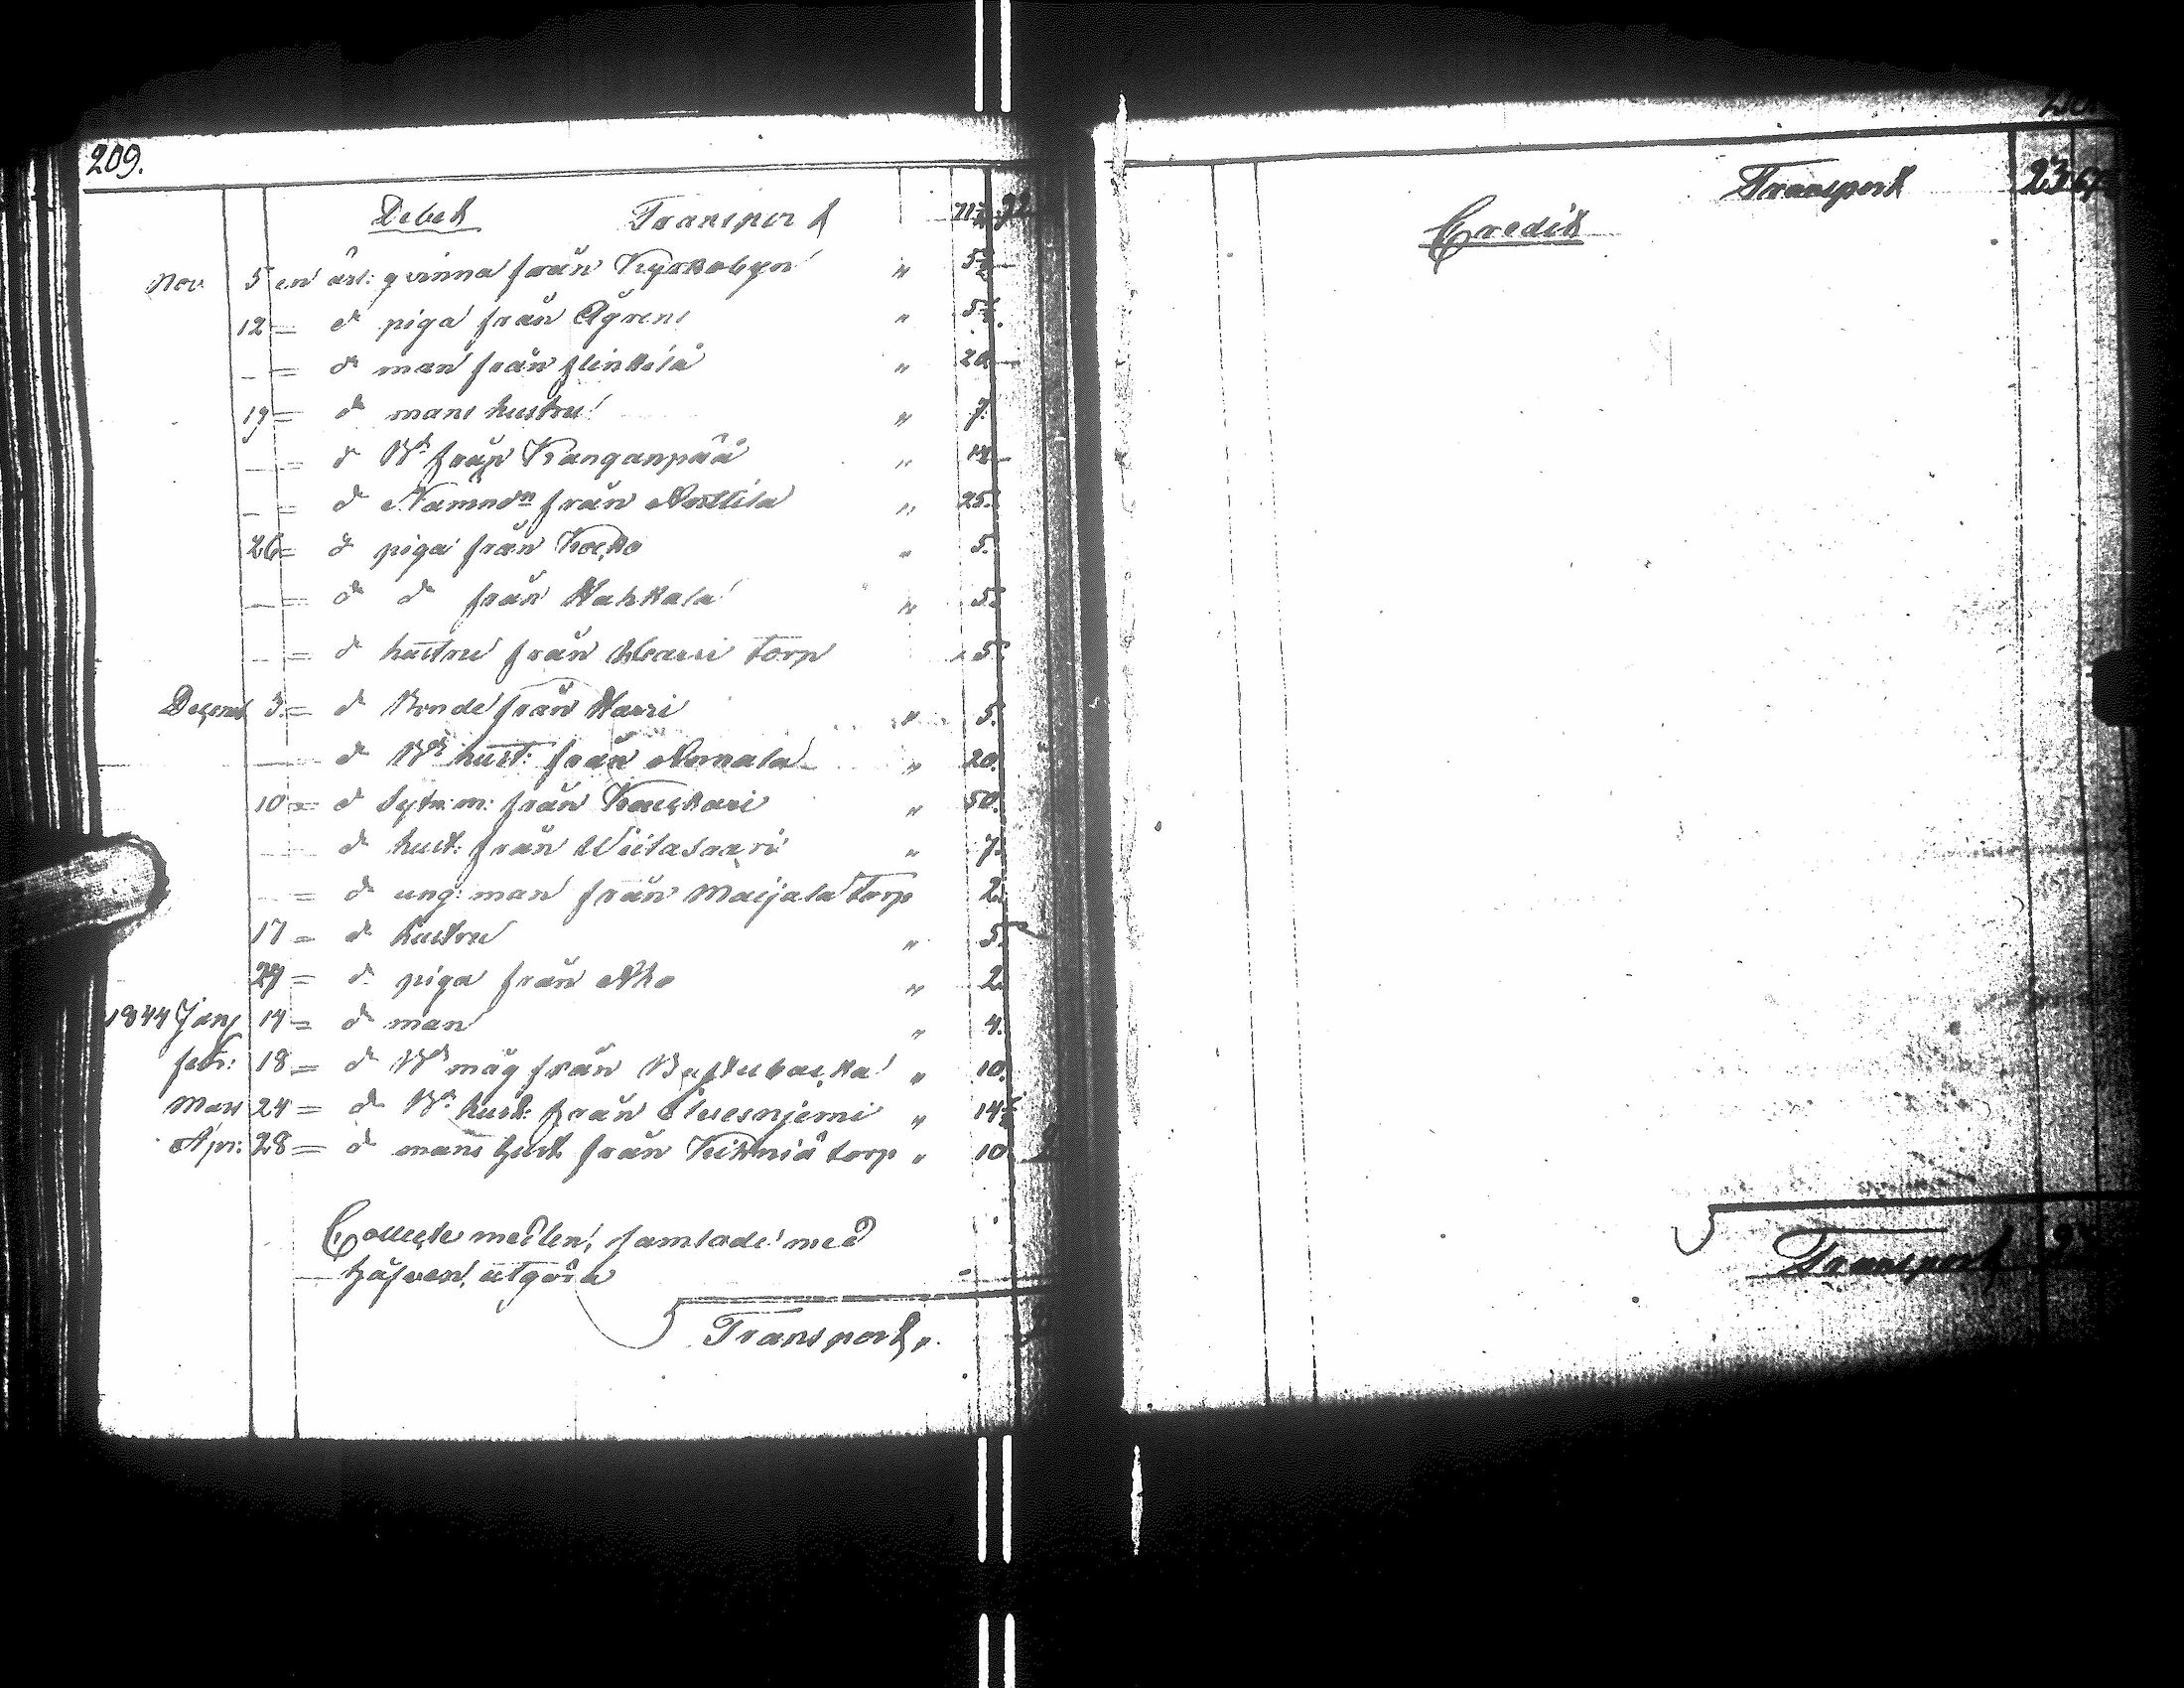 209.
Debet Transport
Nov. 5 en ärl: qvinna från Kyrkobyn " 5½
12 = d piga från Ågrens " 5½.
— = d man från Flinkkilä " 20
19 = d mans hustru " 7
— = d Bd från Kanganpää " 14
— = d Nämndn från Anttila " 25.
26 = d piga från Kocko " 5.
— = d d från Wahkala " 5.
— = d hustru från Harri Torp " 5.
Decemb 3. = d Bonde från Harri " 5.
— d Bds hust: från Annala " 20.
10 = d Sytn: m: från Kauckari " 50.
— d hust: från Wiitasaari " 7.
— = d ung: man från Maijala Torp 2.
17 = d hustru " 5.
27 = d piga från Aho " 2.
1844 Janj 14 = d man " 4.
febr: 18 = d Bd måg från " 10.
Mars 24 = d Bds hust: från " 14½
Apr: 28 = d mans hust från torp " 10
Collecte medlen, samlade med
Håfven, utgöra
Transport, ".
Transport 23 67
Credit
Transport